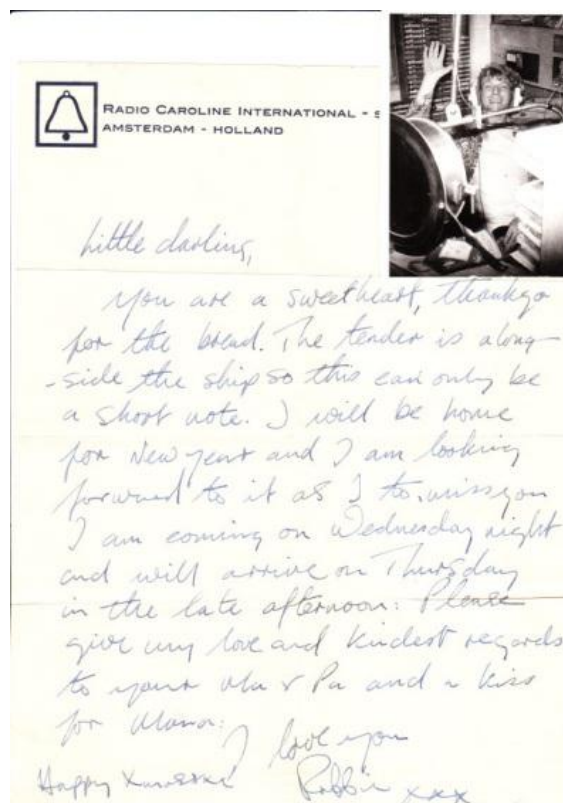 RADIO CAROLINE INTERNATIONAL - S
AMSTERDAM - HOLLAND
Little darling,
You are a sweetheart, thankyo
for the bread. The tender is along-
-side the ship so this can only be
a short note. I will be home
for New year and I am looking
forward to it as I to. miss you
I am coming on Wednesday night
and will arrive on Thursday
in the late afternoon. Please
give my love and kindest regards
to your Ma & Pa and a kiss
for
I love you
Happy Robbie xxx